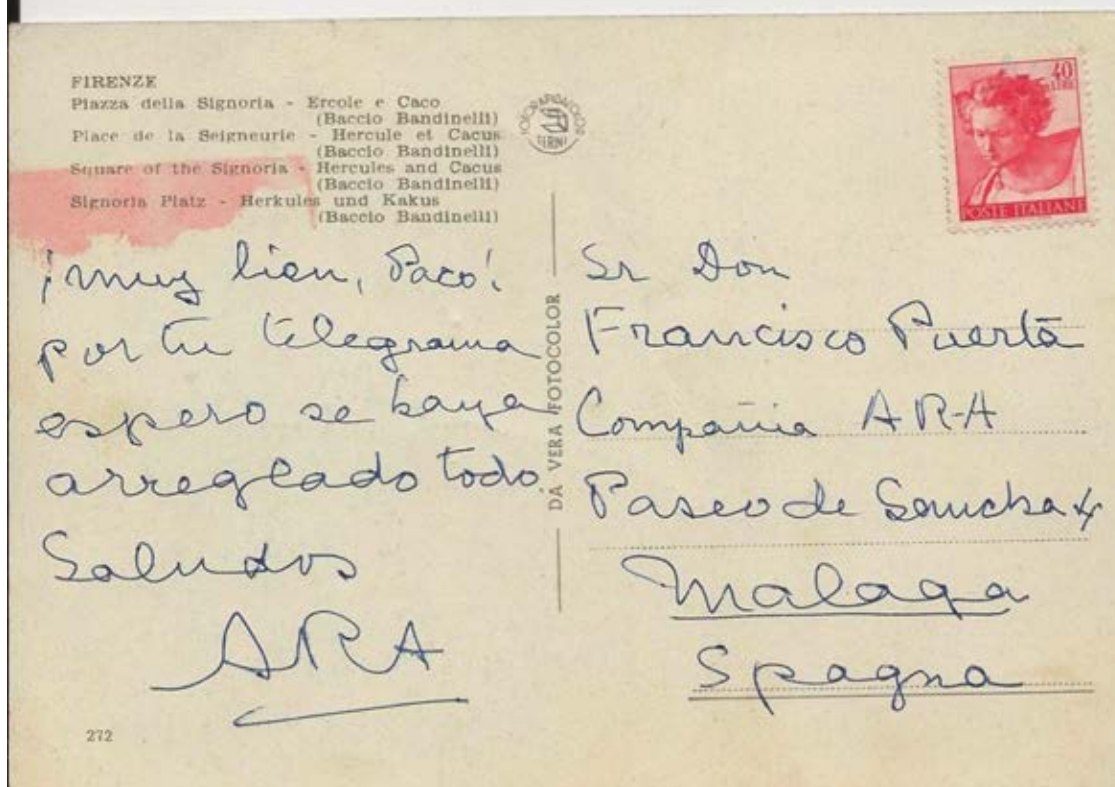 FIRENZE
Piazza della Signoria - Ercole e Caco
(Baccio Bandinelli)
Place de la Seigneurie - Hercule et Cacus
(Baccio Bandinelli)
Square of the Signoria - Hercules and Cacus
(Baccio Bandinelli)
Signoria Platz - Herkules und Kakus
(Baccio Bandinelli)
¡muy bien, Paco!
por tu telegrama
espero se haya
arreglado todo
Saludos
ARA
272
DA VERA FOTOCOLOR
40
LIRE
POSTE ITALIANE
Sr Don
Francisco Puerta
Compañia ARA
Paseo de Sancha
Malaga
Spagna